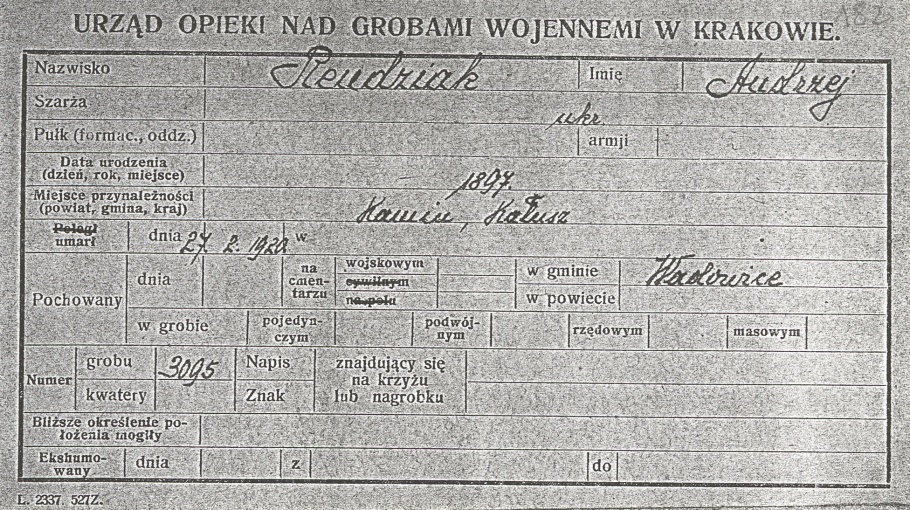 182
URZĄD OPIEKI NAD GROBAMI WOJENNEMI W KRAKOWIE.
Nazwisko Reudziak Imię Andrzej
Szarża
Pułk (formac., oddz.) ukr. armji
Data urodzenia
(dzień, rok, miejsce) 1897.
Miejsce przynależności
(powiat, gmina, kraj) Kamin, Kałusz
Poległ
umarł dnia 27. 2. 1920 w
Pochowany dnia na cmentarzu wojskowym cywilnym na polu w gminie Wadowice
w powiecie
w grobie pojedyn-
czym podwój-
nym rzędowym masowym
Numer grobu 3095 Napis znajdujący się
na krzyżu
kwatery Znak lub nagrobku
Bliższe określenie po-
łożenia mogiły
Ekshumo-
wany dnia z do
L. 2337. 527Z.